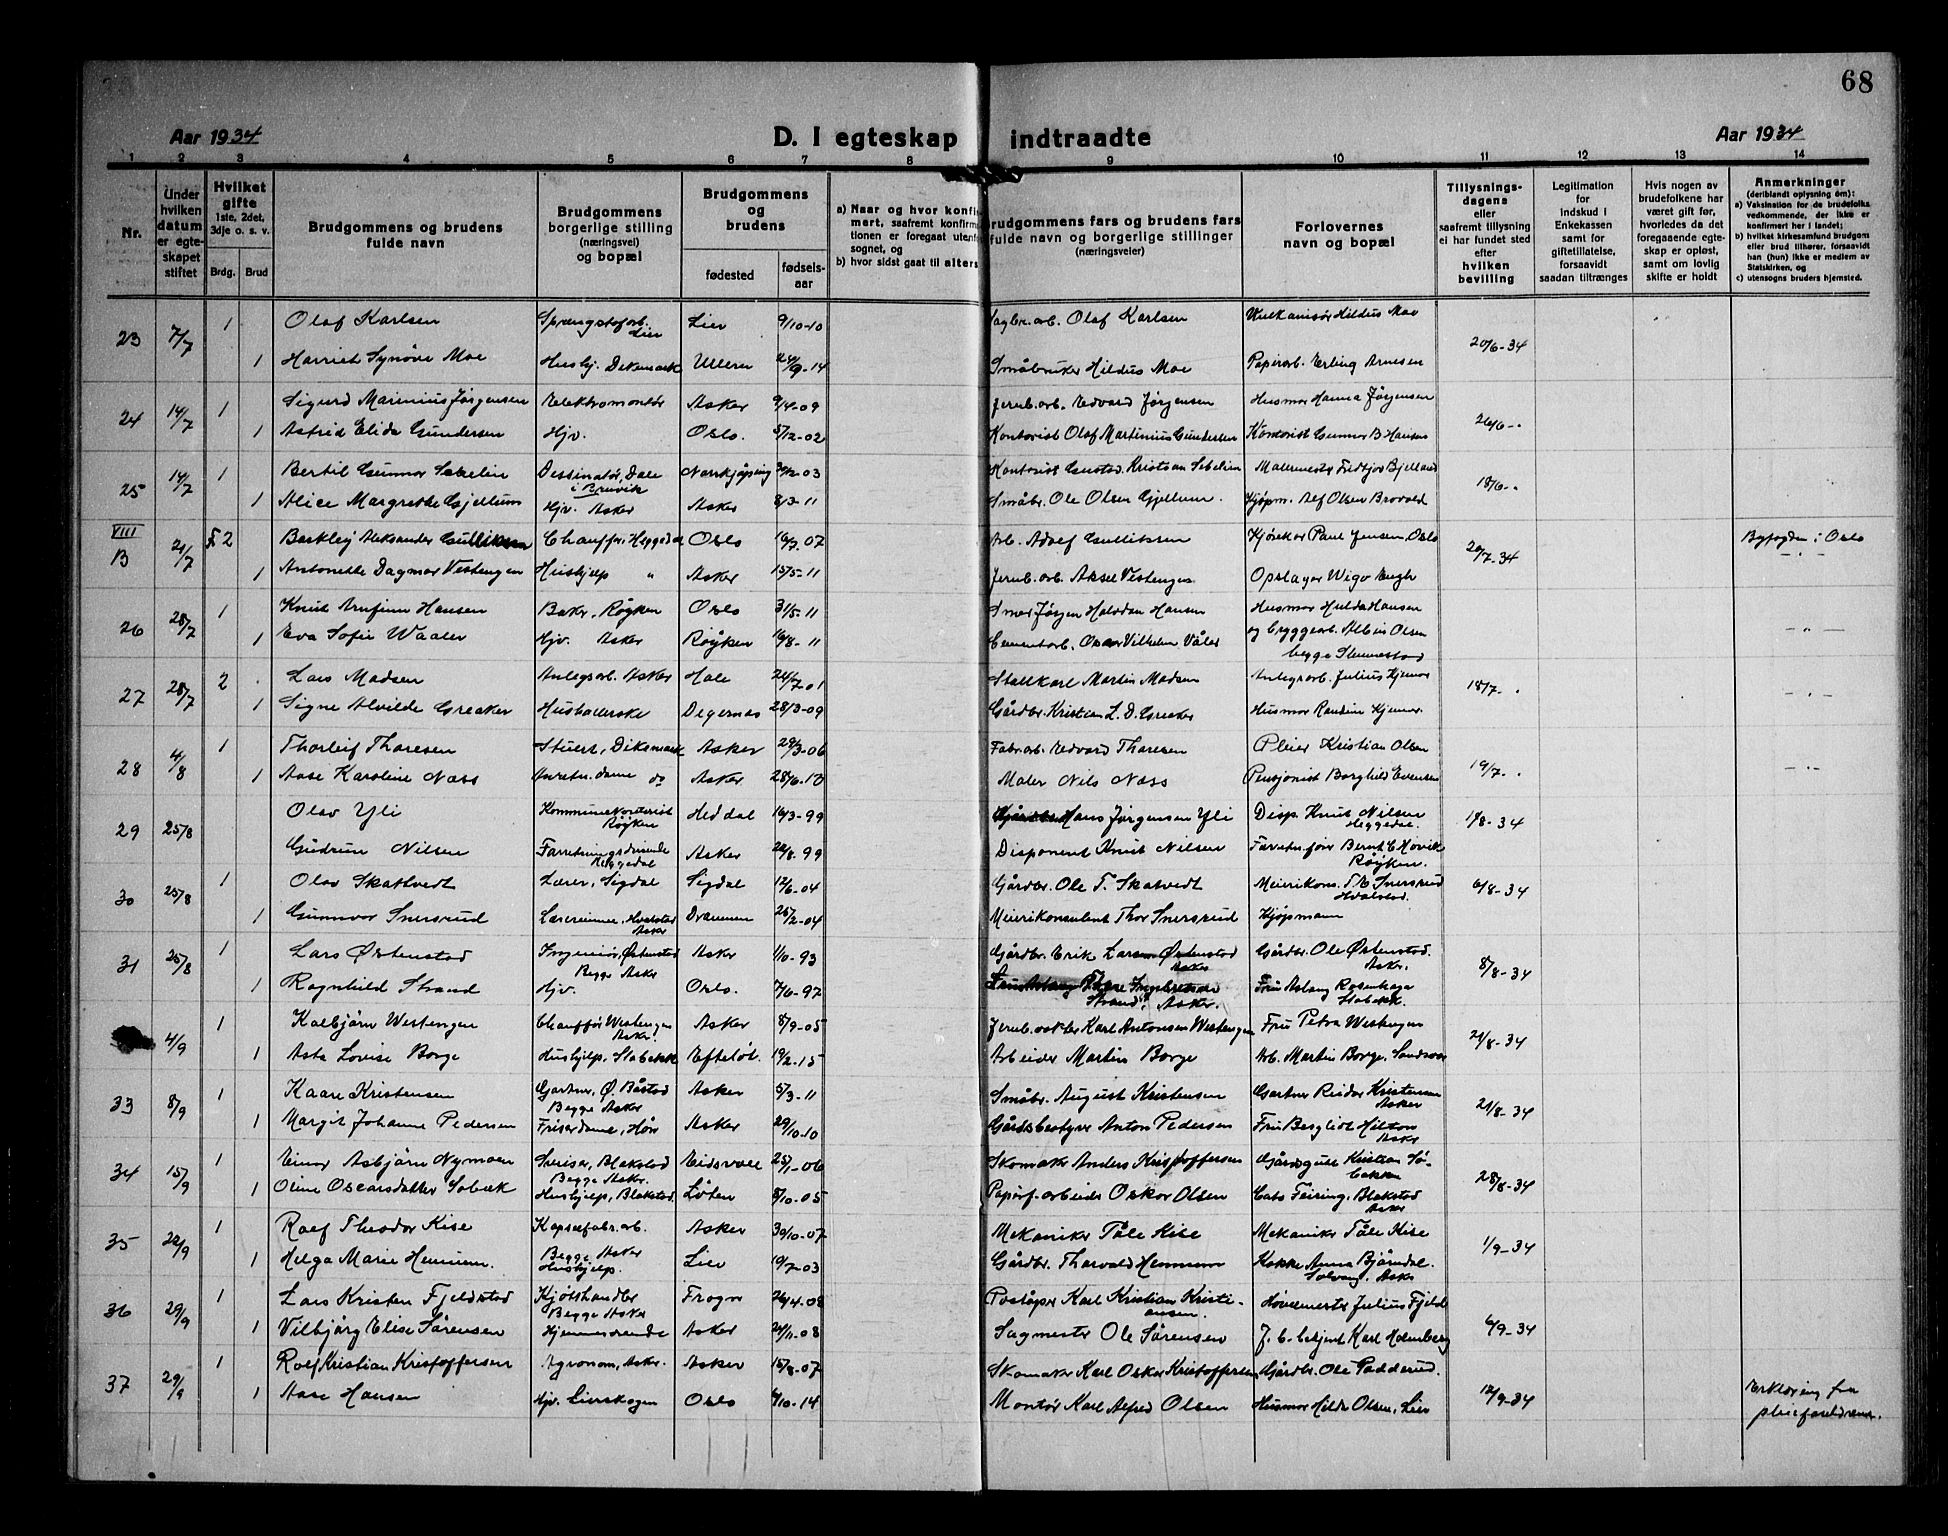 68
Aar 1934
D. I egteskap indtraadte
Aar 1934
1 2 3 4 5 6 7 8 9 10 11 12 13 14
Nr.
Under hvilken datum er egte- skapet stiftet
Hvilket gifte 1ste, 2det, 3dje o. s. v.
Brdg. Brud
Brudgommens og brudens fulde navn
Brudgommens borgerlige stilling (næringsvei) og bopæl
Brudgommens og brudens
fødested
fødsels- aar
a) Naar og hvor konfir
mert, saafremt konfirma
tionen er foregaat utenfo
sognet, og
b) hvor sidst gaat til alters
Brudgommens fars og brudens fars fulde navn og borgerlige stillinger (næringsveier)
Forlovernes navn og bopæl
Tillysnings- dagens eller saafremt tillysning ei har fundet sted efter hvilken bevilling
Legitimation for indskud i Enkekassen samt for giftetillatelse, forsaavidt saadan tiltrænges
Hvis nogen av brudefolkene har været gift før, hvorledes da det foregaaende egte- skap er opløst, samt om lovlig skifte er holdt
Anmerkninger
(deriblandt oplysning om):
a) Vaksination for de brudefolks vedkommende, der ikke er konfirmert her i landet;
b) hvilket kirkesamfund brudgom eller brud tilhører, forsaavidt han (hun) ikke er medlem av Statskirken, og
c) utensogns bruders hjemsted.
23 7/7 1 Olaf Karlsen Sprængstofarb. Lier Lier 9/10-10 Sagbr. arb. Olaf Karlsen Vulkanisør Hildus Moe 20/6-34
1 Harriet Synøve Moe Hushj. Dikemark Ullern 24/9-14 Småbruker Hildus Moe Papirarb. Erling Arnesen
24 14/7 1 Sigurd Marinius Jørgensen Elektromontør Asker 9/4-09 Jernb. arb. Edvard Jørgensen Husmor Hanna Jørgensen 26/6-"
1 Astrid Elida Gundersen Hjv. Oslo. 5/12-02 Kontorist Olaf Martinius Gundersen Kontorist Gunnar B. Hansen
25 14/7 1 Bertil Gunnar Sebelin Destinatør, Dale i Bruvik Norrkjøping 30/12-03 Kontorist Gustav Kristian Sebelin Malermester Fridtjov Bjelland 18/6-"
1 Alice Margrethe Gjellum Hjv. Asker Asker 8/3-11 Småbr. Ole Olsen Gjellum. Kjøpm. Alf Olsen Brovold
VIII B 21/7 F 2 Berkley Aleksander Gulliksen Chauffør, Heggedal Oslo 16/7-07 Arb. Adolf Gulliksen Kjørekar Paul Jensen, Oslo 20/7-34 Byfogden i Oslo
1 Antonette Dagmar Vestengen Hushjelp " Asker 15/5-11 Jernb. arb. Aksel Vestengen Opslager Wigo Engh - " -
26 28/7 1 Knut Arnfinn Hansen Baker, Røyken Oslo 31/5-11 Smed Jørgen Halvdan Hansen Husmor Hulda Hansen
1 Eva Sofie Waaler Hjv. Asker Røyken 16/8-11 Cementarb. Oscar Vilhelm Våler og bryggearb. Albin Olsen begge Slemmestad - " -
27 28/7 2 Lars Madsen Anlegsarb. Asker Hole 24/7-01 Stallkarl Martin Madsen Anlegsarb. Julius Hjemor 18/7-" - " -
1 Signe Alvilde Greaker Husholderske Degernes 28/3-09 Gårdbr. Kristian L. D. Greaker Husmor Randine Hjemor.
28 4/8 1 Thorleif Thoresen Stuert, Dikemark Asker 29/3-06 Fabr. arb. Edvard Thoresen Pleier Kristian Olsen 19/7-" - " -
1 Aase Karoline Næss Anretn. dame do Asker 28/6-13 Maler Nils Næss Pensjonist Borghild Evensen
29 25/8 Olav Yli Kommunekontorist Røyken Heddal 16/3-99 Gårdbr. Hans Jørgensen Yli Disp. Knut Nilsen Heggedal 1/8-34
Gudrun Nilsen Forretningsdrivende Heggedal Asker 22/8-99 Disponent Knut Nilsen Forretn. fører Bernt C. Hovik Røyken.
30 25/8 1 Olav Skatvedt Lærer, Sigdal Sigdal 12/6-04 Gårdbr. Ole T. Skatvedt Meierikons. T. E. Snersrud Hvalstad. 6/8-34
1 Gunnvor Snersrud Lærerinne, Hvalstad Asker Drammen 25/2-04 Meierikonsulent Thor Snersrud Kjøpmann
31 25/8 1 Lars Østenstad Ingeniør, Østenstad Begge Asker Asker 1/10-93 Gårdbr. Erik Larsen Østenstad Asker Gårdbr. Ole Østenstad. Asker. 8/8-34
1 Ragnhild Strand Hjv. Oslo. 7/6-97 Strand, Asker. Fru Aslaug Rosenhage Stabekk.
4/9 1 Kolbjørn Westengen Chauffør Westengen Asker. Asker 8/9-05 Karl Antonsen Westengen Fru Petra Westengen 21/8-34
1 Asta Lovise Borge Hushjelp, Stabekk Efteløt. 19/2-15 Arbeider Martin Borge Arb. Martin Borge, Sandsvær
33 8/9 1 Kaare Kristensen Gartner, Ø. Båstad Begge Asker Asker 5/3-11 Småbr. August Kristensen Gartner Reidar Kristensen Asker 21/8-34
1 Margit Johanne Pedersen Friserdame, Høn Asker 29/10-10 Gårdsbestyrer Anton Pedersen Fru Bergliot Hilton Asker
34 15/9 1 Einar Asbjørn Nymoen Sveiser, Blakstad Begge Asker. Eidsvoll 25/1-06 Skomaker Anders Kristoffersen Gårdsgutt Kristian Sö- bakken 28/8-34
1 Oline Oscarsdatter Sobæk Hushjelp, Blakstad Løten 8/10-05 Papirf. arbeider Oskar Olsen Cato Feiring, Blakstad Asker
35 22/9 1 Rolf Theodor Kise Kapselfabr. arb. Asker 30/10-07 Mekaniker Påle Kise Mekaniker Påle Kise 1/9-34
1 Helga Marie Hennum. Begge Asker Hushjelp. Lier 19/7-03 Gårdbr. Thorvald Hennum Kokke Anna Bjørndal. Solvang, Asker
36 29/9 1 Lars Kristen Fjeldstad Kjøtthandler Begge Asker Frogn 26/4-08 Poståpner Karl Kristian Kristi- ansen. Hovmester Julius Fjeld 6/9-34
1 Vilbjørg Elise Sørensen Hjemmeværende Asker 24/11-08 Sagmester Ole Sørensen J. b. betjent Karl Holmberg
37 29/9 1 Rolf Kristian Kristoffersen Agronom, Asker. Asker 15/8-07 Skomaker Karl Oskar Kristoffersen Gårdbr. Ole Padderud. 12/9-34
1 Aase Hansen Hjv. Lierskogen Oslo 4/10-14 Montør Karl Alfred Olsen Husmor Hilda Olsen, Lier Erklæring fra pleieforeldrene.